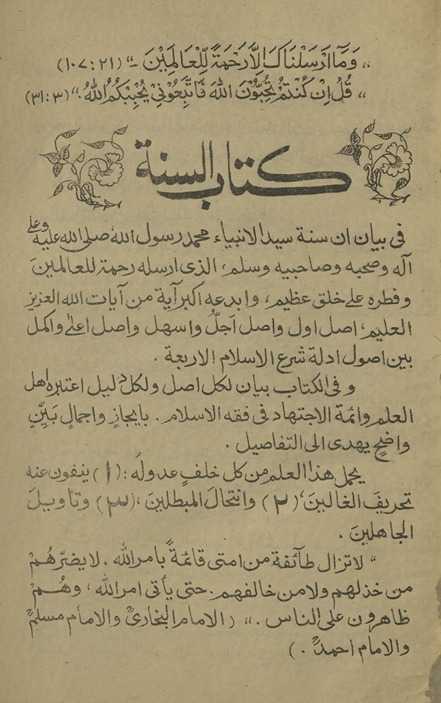 „ وَمَآ اَرْسَلْنَاكَ اِلَّا رَحْمَةً لِّلْعَالَمِيْنَ - “ (٢١ : ١٠٧)
„ قُلْ اِنْ كُنْتُمْ تُحِبُّوْنَ اللهَ فَاتَّبِعُوْنِيْ يُحْبِبْكُمُ اللهُ . “ (٣ : ٣١)
كتاب السنة
فى بيان ان سنة سيد الانبياء محمد رسول الله صلى الله عليه وعلى
آله وصحبه وصاحبيه وسلم ، الذى ارسله رحمة للعالمين
وفطره على خلق عظيم ، وابدعه اكبر آية من آيات الله العزيز
العليم ، اصل اول واصل اجلّ واسهل واصل اعلىٰ واكمل
بين اصول ادلة شرع الاسلام الاربعة .
وفى الكتاب بيان لكل اصل ولكل دليل اعتبره اهل
العلم وائمة الاجتهاد فى فقه الاسلام . بايجازٍ واجمالٍ بَيِّنٍ
واضحٍ يهدى الى التفاصيل .
يحمل هذا العلم من كل خلفٍ عدولُه : (١) ينفون عنه
تحريفَ الغالينَ ، (٢) وانتحالَ المبطلينَ ، (٣) وتاويلَ
الجاهلينَ .
” لا تزال طآئفة من امتى قائمةً بامر الله . لا يضرّهُمْ
من خذلهم ولا من خالفهم . حتى يأتى امر الله ، وهُمْ
ظاهرون على الناس . “ ( الامام البخارىّ والامام مسلمٌ
والامام احمدُ . )